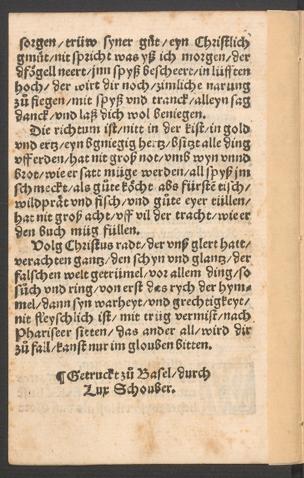 sorgen/ trüw syner güt/ eyn Christlich
gmüt/ nit spricht was yß ich morgen/ der
dfögell neert/ jnn spyß bescheert/ in lüfften
hoch/ der wirt dir noch/ zimliche narung
zů fiegen/ mit spyß vnd tranck/ alleyn sag
danck/ vnd laß dich wol beniegen.
Die richtum ist/ nitt in der kist/ in gold
vnd ertz/ eyn bgniegig hertz/ bsitzt alle ding
vff erden/ hat nit groß not/ vmb wyn vnnd
brot/ wie er satt müge werden/ all spyß jm
schmeckt/ als güte köcht abs fürstē tisch/
wildprät vnd fisch/ vnd güte eyer tüllen/
hat nit groß acht/ vff vil der tracht/ wie er
den buch müg füllen.
Volg Christus radt/ der vnß glert hatt/
verachten gantz/ den schyn vnd glantz/ der
falschen welt getrümel/ vor allem ding/ so
sůch vnd ring/ von erst des rych der hym-
mel/ dann syn warheyt/ vnd grechtigkeyt/
nit fleyschlich ist/ mit trüg vermist/ nach
Phariseer sitten/ das ander all/ wird dir
zů fall/ kanst nur im glouben bitten.
¶ Getruckt zů Basel/ durch
Lux Schouber.